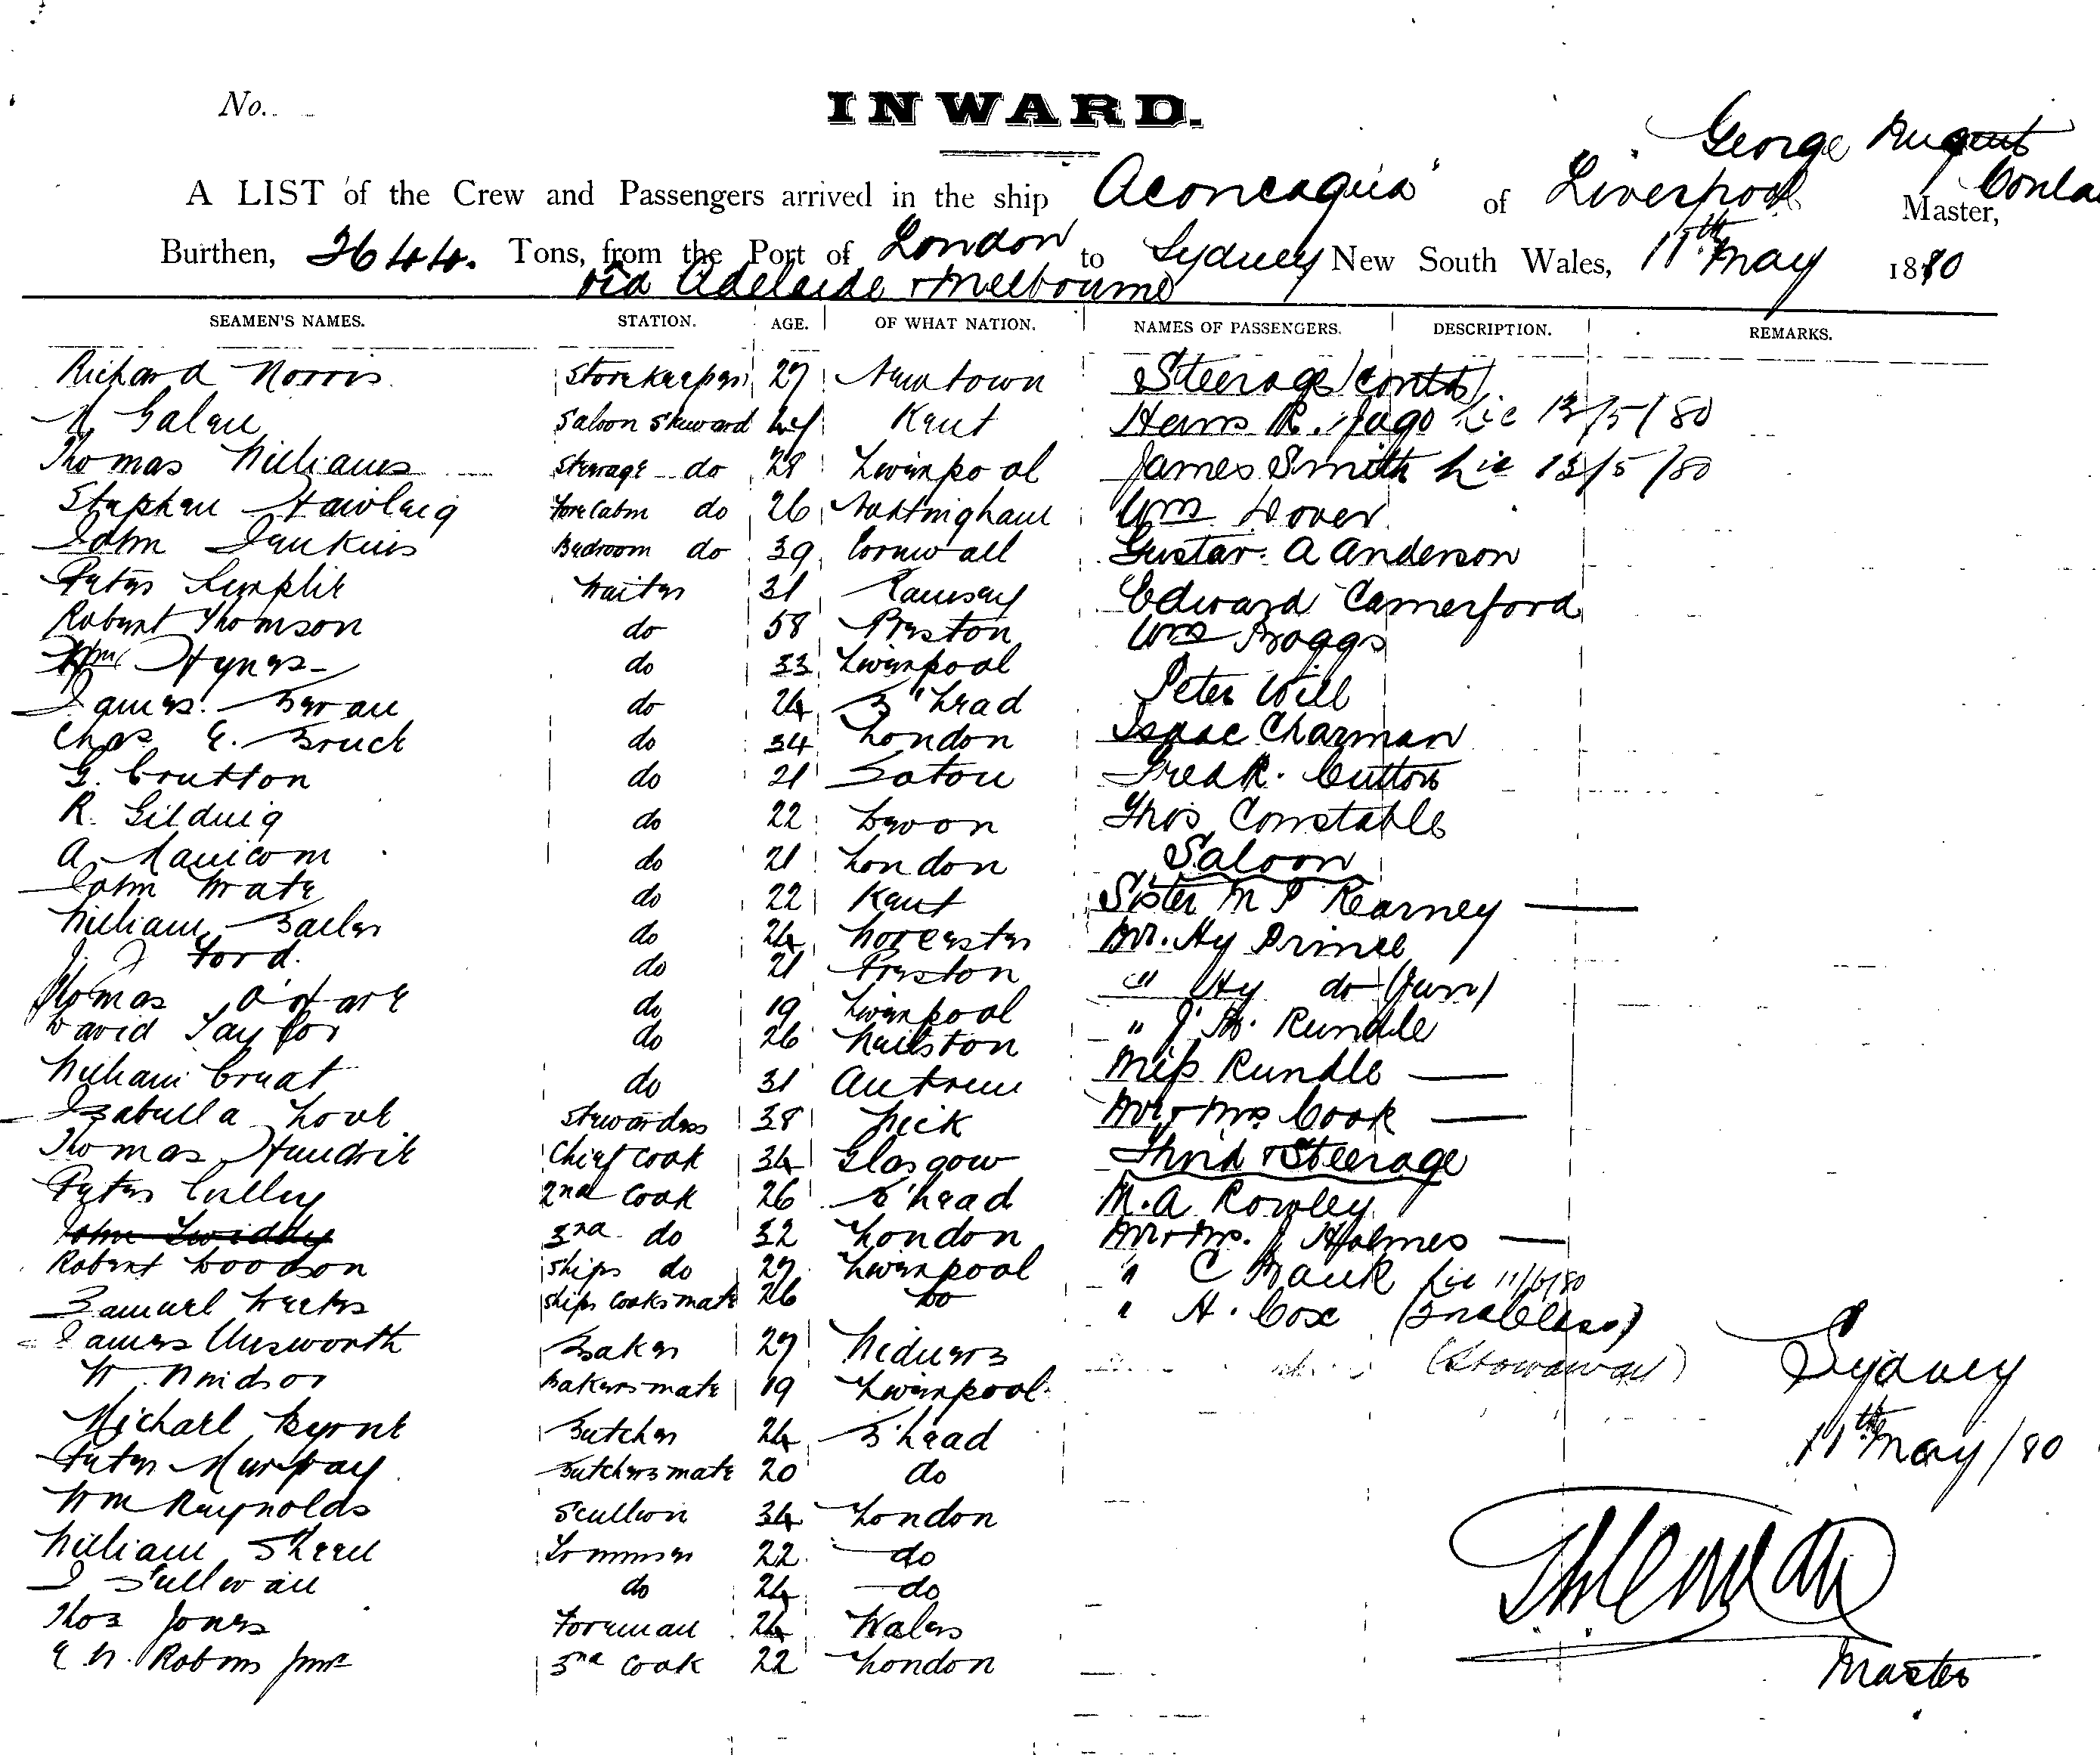 No.
INWARD.
George August
A LIST of the Crew and Passengers arrived in the ship "Aconcagua" of Liverpool Master, Conla
Burthen, 2644. Tons, from the Port of London to Sydney New South Wales, 11th May 1880
via Adelaide & Melbourne
SEAMEN'S NAMES. STATION. AGE. OF WHAT NATION. NAMES OF PASSENGERS. DESCRIPTION. REMARKS.
Richard Norris Storekeeper 27 Newtown Steerage (contd)
Galen Saloon Steward Kent R. Jago Lic 13/5/80
Thomas Williams Steerage do 28 Liverpool James Smith Lic 13/5/80
Stephen Forecabin do 26 Nottingham Wm Dover
John Jenkins Bedroom do 39 Cornwall Gustav. A Anderson
Peter Waiter 31 Ramsey Edward Camerford
Robert Thomson do 58 Preston Wm Boggs
Wm Hynes do 33 Liverpool Peter Will
James Bevan do 24 B'head Isaac Charman
Chas E. Bruck do 34 London Fredk. Cutton
G. Crutton do 21 Thos Constable
R. Gilduig do 22 Devon Saloon
A. do 21 London Sister M P Kearney
John Wate do 22 Kent Mr. Hy Prince
William Bailer do 24 Worcester " Hy do (Jun)
J. J Ford. do 21 Preston " J. Rundle
Thomas O'Hare do 19 Liverpool Miss Rundle
David Taylor do 26 Mr & Mrs Cook
William do 31 Antrim Third & Steerage
Isabella Love Stewardess 38 Wick M. A Rowley
Thomas Chief Cook 34 Glasgow Mr & Mrs. J Holmes
Peter Culley 2nd Cook 26 B'head " C Lic
John Twiddy 3rd do 32 London " H. Cox
Robert Woodson Ships do 29 Liverpool (Stowaway)
Samuel Weeks Ships Cooks mate 26 Do
James Unsworth Baker 29 Widners
W. Bakers mate 19 Liverpool
Michael Byrne Butcher 24 B'head
Peter Murphy Butchers mate 20 do
Wm Reynolds Scullion 34 London
William 22 do
J Sullivan do 24 do
Thos Jones Foreman 24 Wales
E. N. Robins Junr 3rd Cook 22 London
Sydney
11th May/80
Master